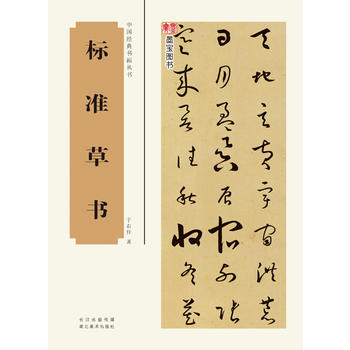 中国经典书画丛书
标准草书
于右任 著
长江出版传媒
湖北美术出版社
墨宝图书
天地玄黄宇宙洪荒
日月盈昃辰宿列张
寒来暑往秋收冬藏